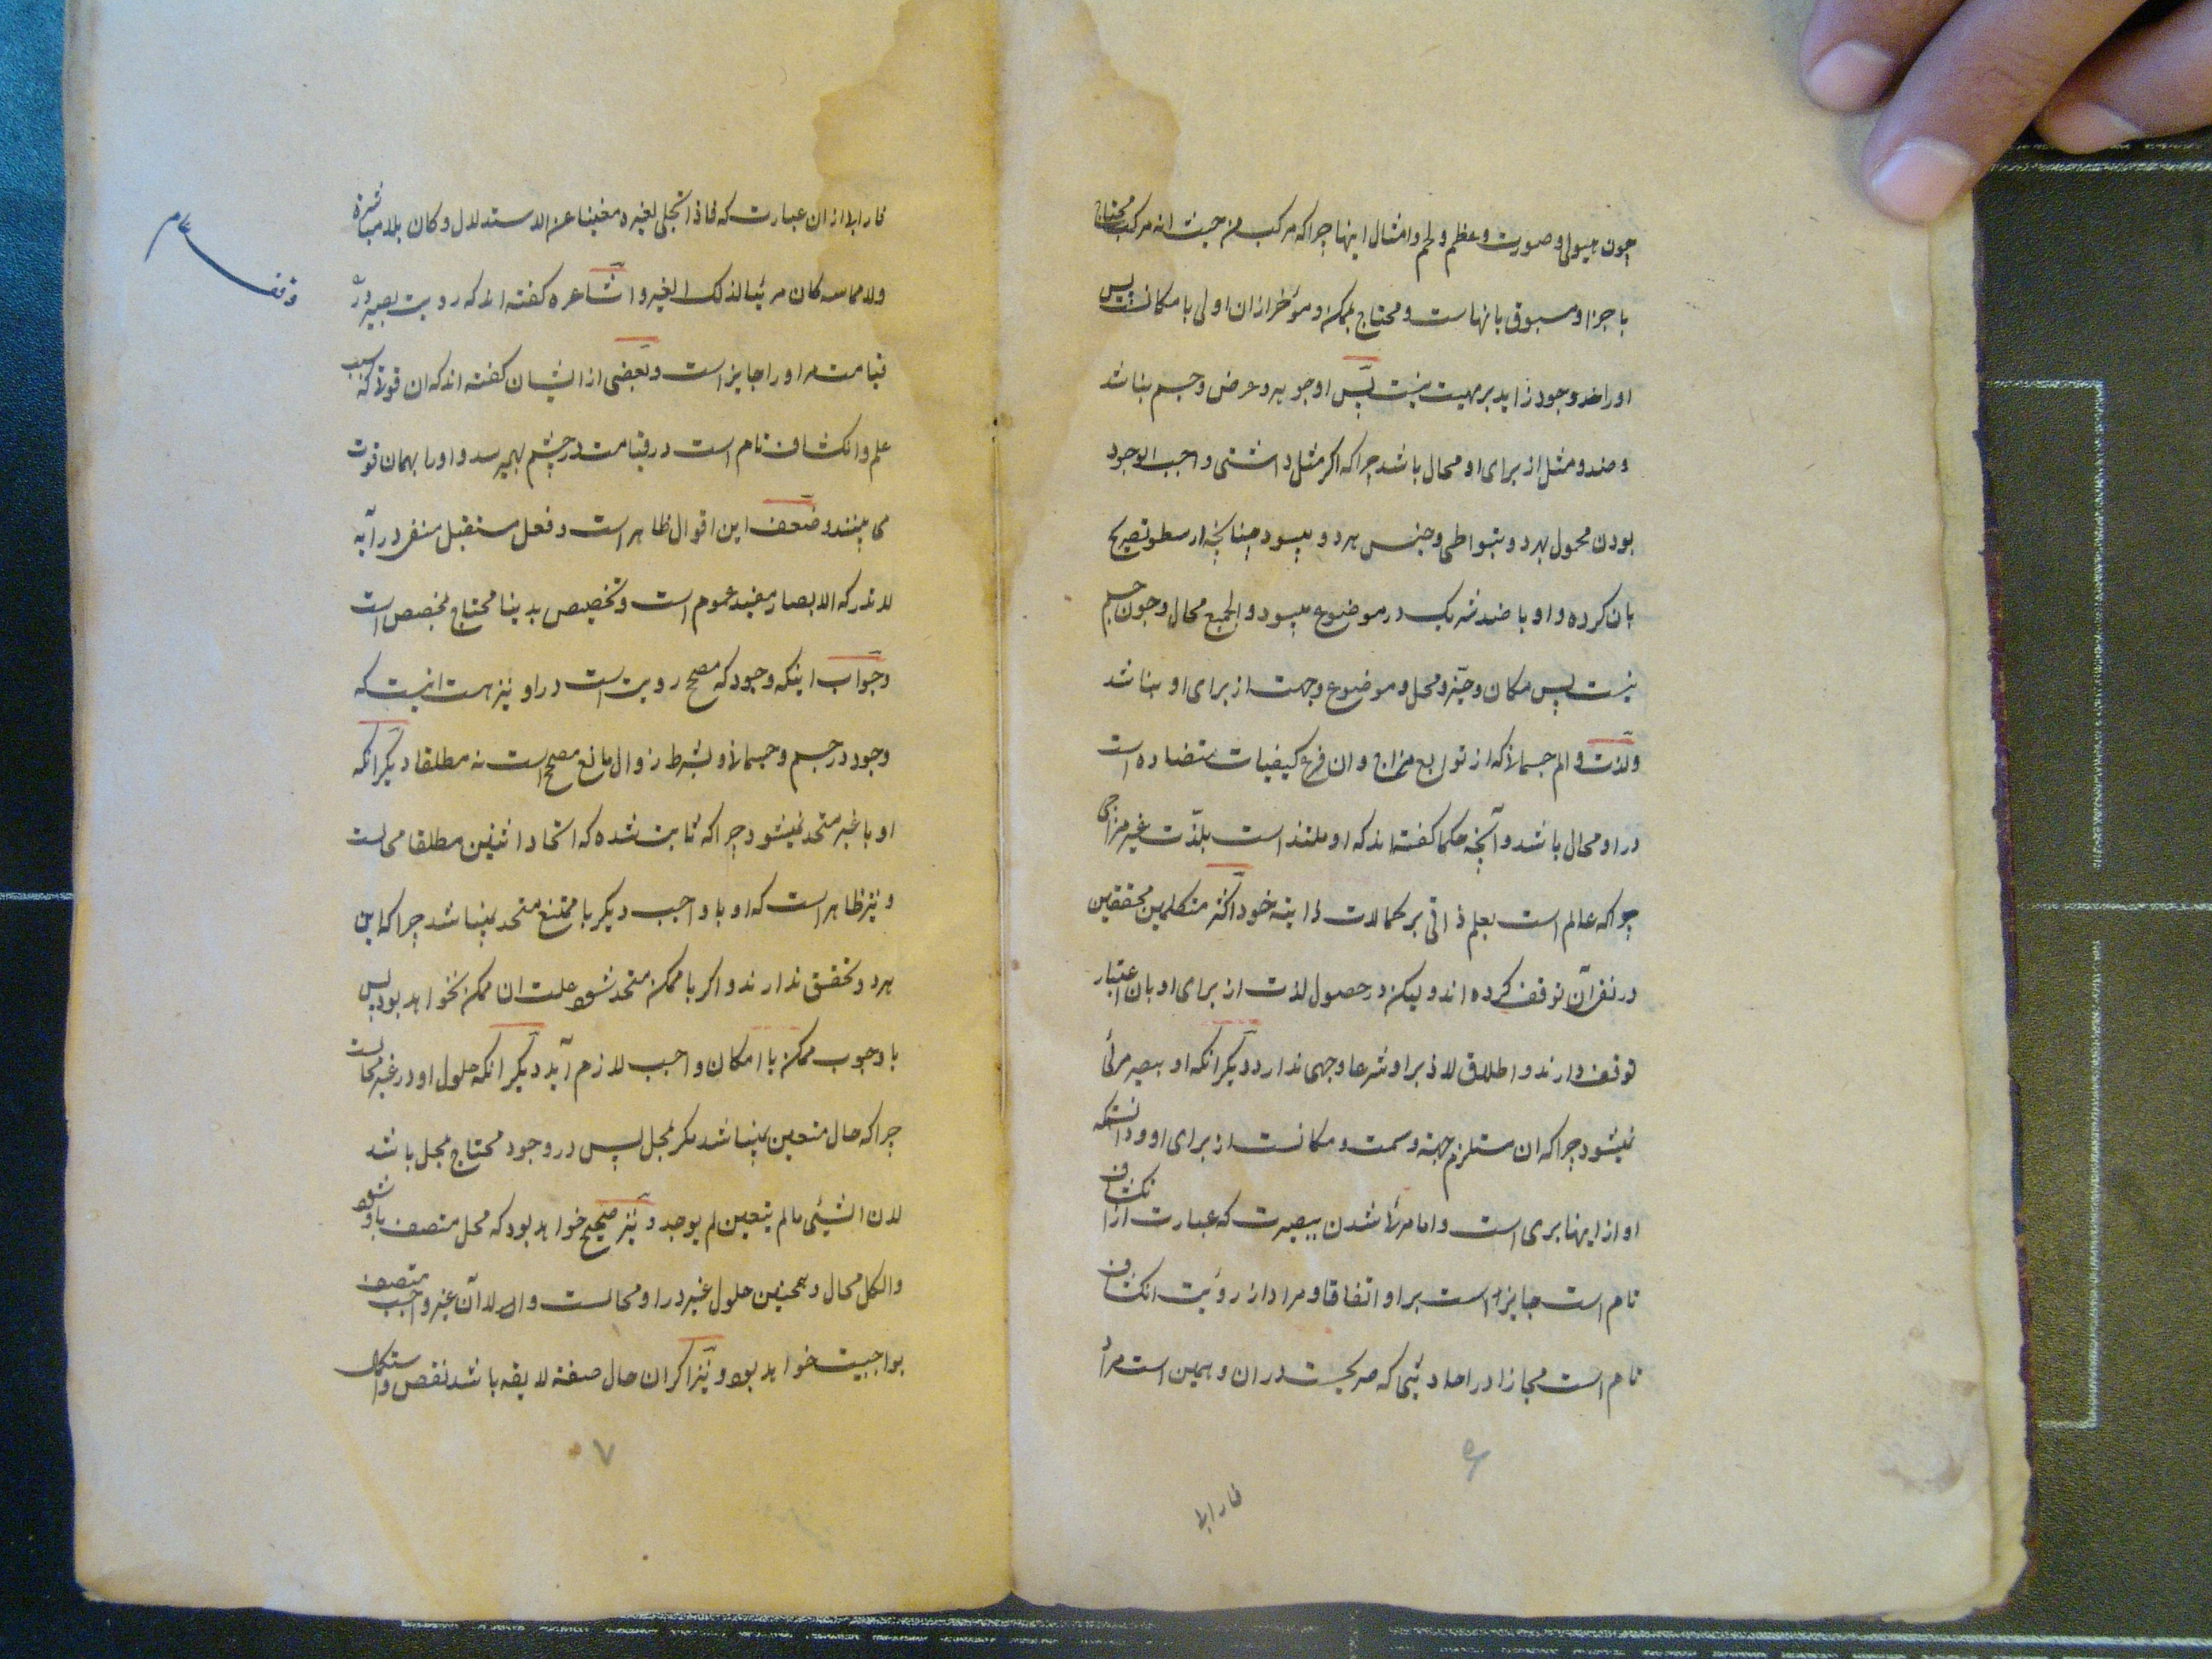 چون هیولی و صورت و عظم و لحم و امثال اینها چرا که مرکب من حیث انه مرکب محتاج
با جزا و مسبوق بانهاست و محتاج ممکن و مؤخر از ان اولی بامکانست پس
اورا ضد وجود زاید بر مهیت نیست پس او جوهر و عرض و جسم نباشد
و ضد و مثل از برای او محال باشد چرا که اگر مثل داشتی واجب الوجود
بودن محمول بهر دو بتواطی و جنس هر دو میبود چنانچه ارسطو تصریح
بان کرده و او با ضد شریک در موضوع میبود و الجمیع محال و چون جسم
نیست پس مکان و حیّز و محل و موضوع و جهت از برای او نباشد
و لذت و الم جسمانی که از توابع مزاج و ان فرع کیفیات متضاده است
در او محال باشد و آنچه حکما گفته اند که او ملتذ است بلذّت غیر مزاجی
چرا که عالم است بعلم ذاتی بر کمالات ذاتیه خود اکثر متکلمین محققین
در نفی آن توقف کرده اند و لیکن در حصول لذت از برای او بان اعتبار
توقف دارند و اطلاق لاذ بر او شرعا وجهی ندارد دیگر انکه او ببصر مرئی
نمیشود چرا که ان مستلزم جهة و سمت و مکانست از برای او و دانستکه
او از اینها بری است و اما مرئی شدن ببصیرت که عبارت از انکشاف
تام است جایز است بر او اتفاقا و مراد از رؤیت انکشاف
تام است مجازا در احادیثی که صریحست در ان و همین است مراد
۶
فارابی
فارابی از ان عبارت که فاذا تجلی لغیره مغنیا عن الاستدلال و کان بلا مباشرة
ولا مماسه کان مرئیا لذلک الغیر و اشاعره گفته اند که رویت ببصر در
قیامت مر او را جایز است و بعضی از ایشان گفته اند که ان قوتی که سبب
علم و انکشاف تام است در قیامت در چشم بهم میرسد و او را بهمان قوت
می بینند و ضعف این اقوال ظاهر است و فعل مستقبل منفی در آیه
لا تدرکه الابصار مفید عموم است و تخصیص بدنیا محتاج بمخصص است
و جواب اینکه وجود که مصحح رویت است در او نیز هست اینست که
وجود در جسم و جسمانی و بشرط زوال مانع مصحح است نه مطلقا دیگر انکه
او با غیر متحد نمیشود چرا که ثابت شده که اتحاد اثنین مطلقا محالست
و نیز ظاهر است که او با واجب دیگر با ممتنع متحد نمیباشد چرا که این
هر دو تحقق ندارند و اگر با ممکن متحد شود علت ان ممکن نخواهد بود پس
با وجوب ممکن یا امکان واجب لازم آید دیگر انکه حلول او در غیر محالست
چرا که حال متعین نمیباشد مگر بمحل پس در وجود محتاج بمحل باشد
لان الشیئی مالم یتعین لم یوجد و نیز صحیح خواهد بود که محل متصف باو شود
والکل محال و همچنین حلول غیر در او محالست و الا لا آن غیر واجب متصف
بواجبیت خواهد بود و نیز اگر ان حال صفة لایقه باشد نقص و استکمال
۷
وقف